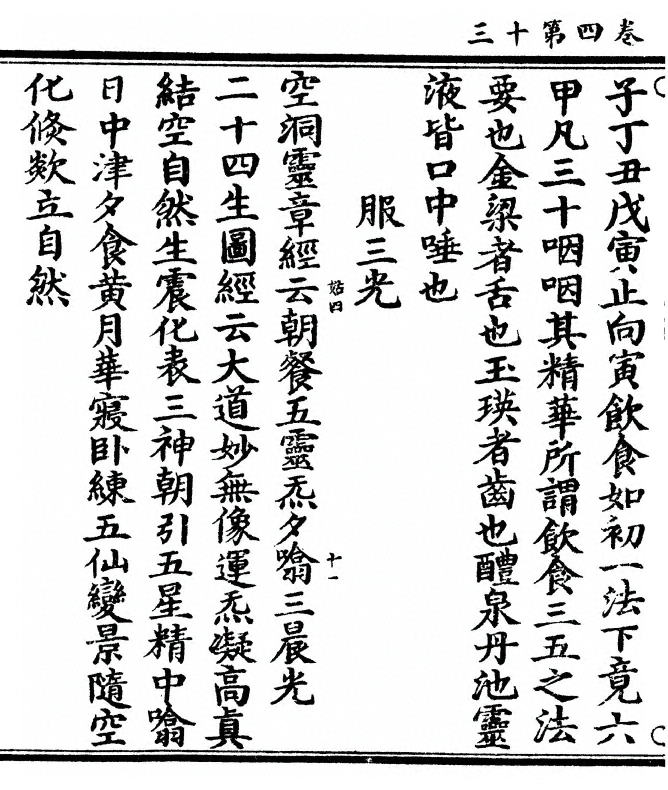 三十第四卷
子丁丑戊寅止向寅飲食如初一法下竟六
甲凡三十咽咽其精華所謂飲食三五之法
要也金梁者舌也玉瑛者齒也醴泉丹池靈
液皆口中唾也
服三光
空洞靈章經云朝餐五靈炁夕噏三晨光
始四
十一
二十四生圖經云大道妙無像運炁凝高真
結空自然生震化表三神朝引五星精中噏
日中津夕食黄月華寢卧練五仙變景隨空
化倏欻立自然